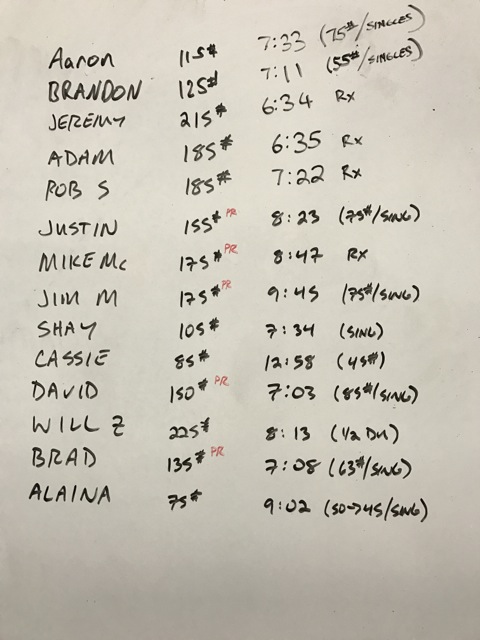 Aaron 115# 7:33 (75#/SINGLES)
BRANDON 125# 7:11 (55#/SINGLES)
JEREMY 215# 6:34 Rx
ADAM 185# 6:35 Rx
ROB S 185# 7:22 Rx
JUSTIN 155# PR 8:23 (75#/SING)
MIKE Mc 175# PR 8:47 Rx
JIM M 175# PR 9:45 (75#/SING)
SHAY 105# 7:34 (SING)
CASSIE 85# 12:58 (45#)
DAVID 150# PR 7:03 (85#/SING)
WILL Z 225# 8:13 (1/2 DU)
BRAD 135# PR 7:08 (63#/SING)
ALAINA 75# 9:02 (50→45/SING)